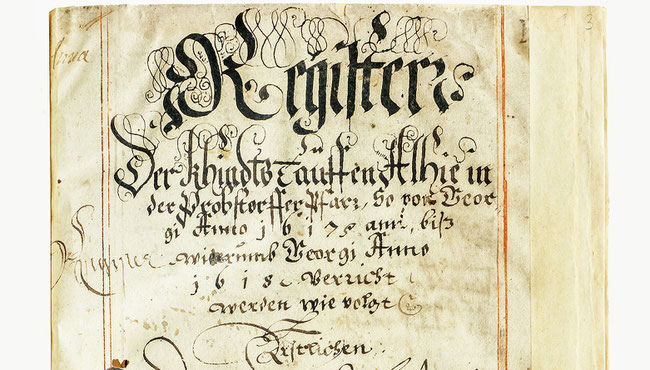 Register
Der Khindts Tauffen Alhie in
der Probstorffer Pfarr, So von Geor-
gi Anno 1617 ann, biß
widerumb Georgi Anno
1618 Verricht
werden wie volgt
Erstlichen